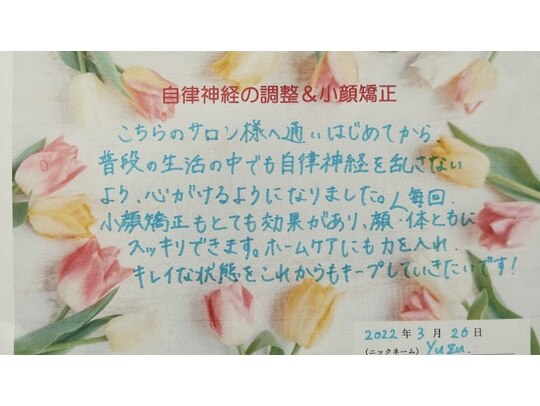 自律神経の調整＆小顔矯正
こちらのサロン様へ通いはじめてから
普段の生活の中でも自律神経を乱さない
よう、心がけるようになりました。毎回
小顔矯正もとても効果があり、顔・体ともに
スッキリできます。ホームケアにも力を入れ
キレイな状態をこれからもキープしていきたいです！
2022年3月26日
(ニックネーム) Yuzu.